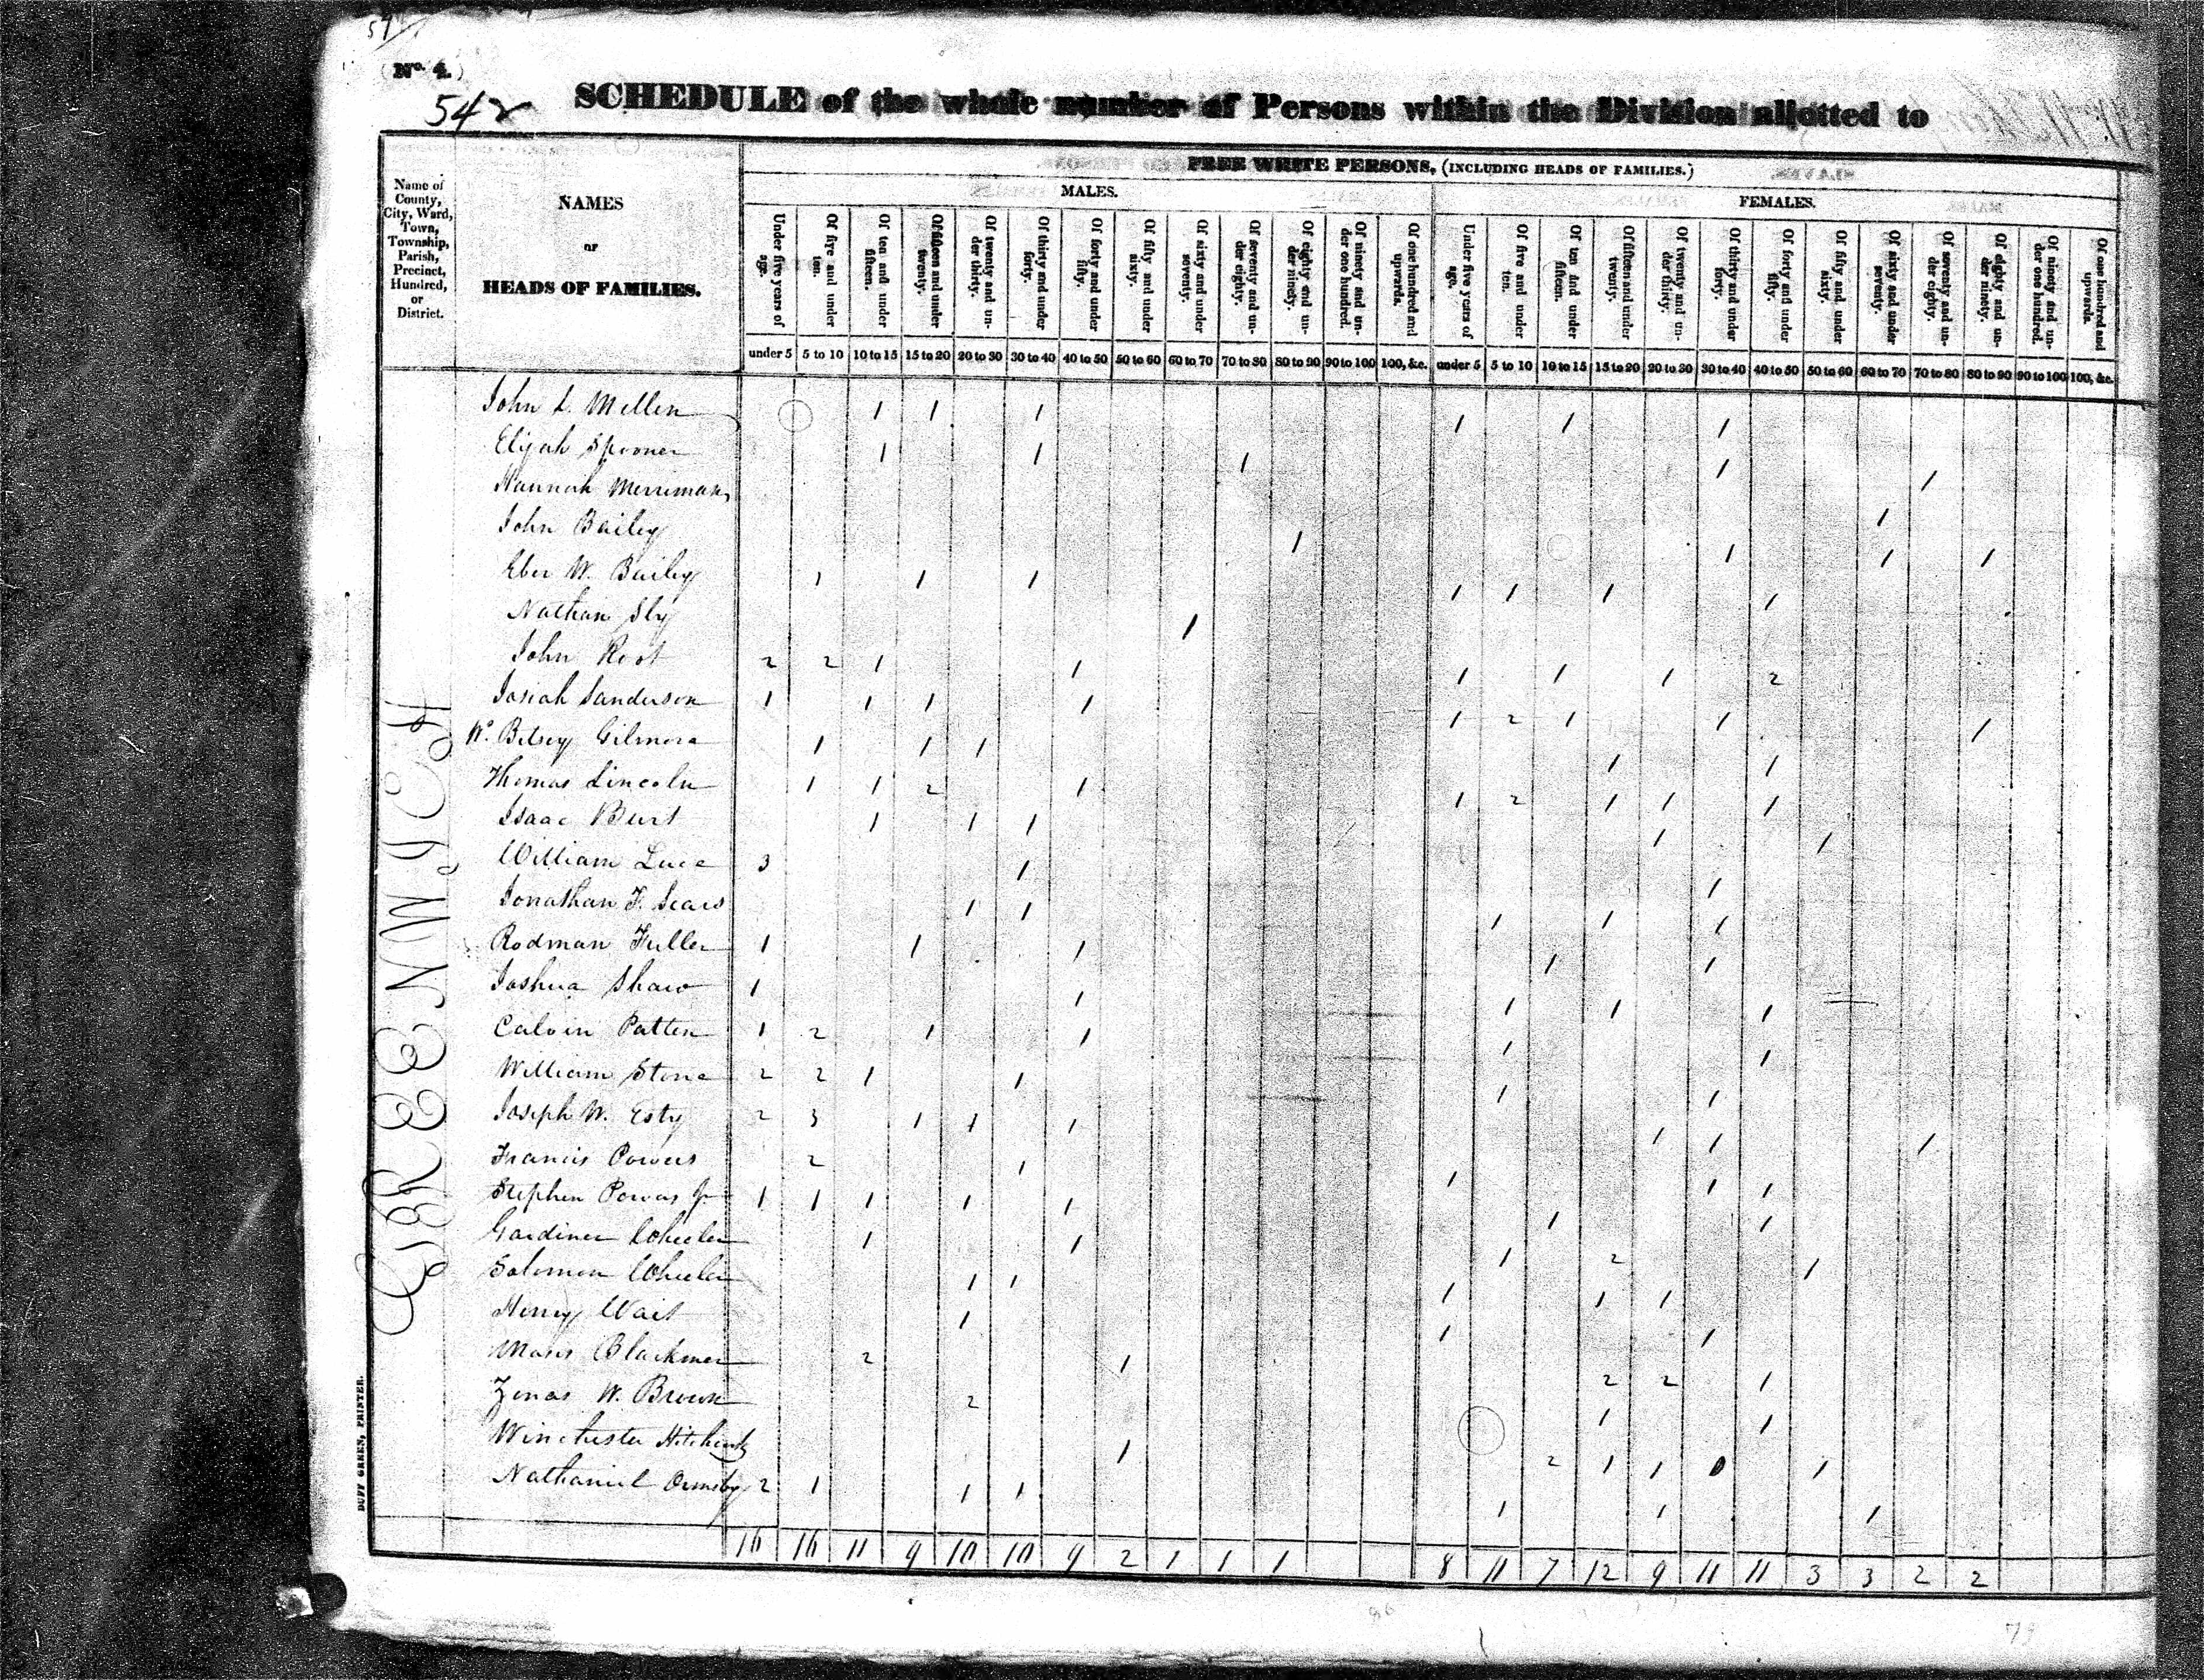 No. 4.
542
SCHEDULE of the whole number of Persons within the Division allotted to
Name of County, City, Ward, Town, Township, Parish, Precinct, Hundred, or District.
NAMES
OF
HEADS OF FAMILIES.
FREE WHITE PERSONS, (INCLUDING HEADS OF FAMILIES.)
MALES. FEMALES.
Under five years of age. Of five and under ten. Of ten and under fifteen. Of fifteen and under twenty. Of twenty and under thirty. Of thirty and under forty. Of forty and under fifty. Of fifty and under sixty. Of sixty and under seventy. Of seventy and under eighty. Of eighty and under ninety. Of ninety and under one hundred. Of one hundred and upwards. Under five years of age. Of five and under ten. Of ten and under fifteen. Of fifteen and under twenty. Of twenty and under thirty. Of thirty and under forty. Of forty and under fifty. Of fifty and under sixty. Of sixty and under seventy. Of seventy and under eighty. Of eighty and under ninety. Of ninety and under one hundred. Of one hundred and upwards.
under 5 5 to 10 10 to 15 15 to 20 20 to 30 30 to 40 40 to 50 50 to 60 60 to 70 70 to 80 80 to 90 90 to 100 100, &c. under 5 5 to 10 10 to 15 15 to 20 20 to 30 30 to 40 40 to 50 50 to 60 60 to 70 70 to 80 80 to 90 90 to 100 100, &c.
GREENWICH
John L. Mellen 1 1 1 1 1 1
Elijah Spooner 1 1 1 1 1
Hannah Merriman 1
John Bailey 1 1 1 1
Eber W. Bailey 1 1 1 1 1 1 1
Nathan Sly 1
John Root 2 2 1 1 1 1 1 2
Josiah Sanderson 1 1 1 1 1 2 1 1 1
Wo. Betsey Gilmore 1 1 1 1 1
Thomas Lincoln 1 1 2 1 1 2 1 1 1
Isaac Burt 1 1 1 1 1
William Luce 3 1 1
Jonathan F. Sears 1 1 1 1 1
Rodman Fuller 1 1 1 1 1
Joshua Shaw 1 1 1 1 1
Calvin Patten 1 2 1 1 1 1
William Stone 2 2 1 1 1 1
Joseph W. Esty 2 3 1 1 1 1 1 1
Francis Powers 2 1 1 1 1
Stephen Powers Jr 1 1 1 1 1 1 1
Gardiner Wheeler 1 1 1 2 1
Solomon Wheeler 1 1 1 1 1
Henry Wait 1 1 1
Moses Blackmer 2 1 2 2 1
Zenas W. Brown 2 1 1
Winchester Hitchcock 1 2 1 1 0 1
Nathaniel Ormsby 2 1 1 1 1 1 1
16 16 11 9 10 10 9 2 1 1 1 8 11 7 12 9 11 11 3 3 2 2
DUFF GREEN, PRINTER.